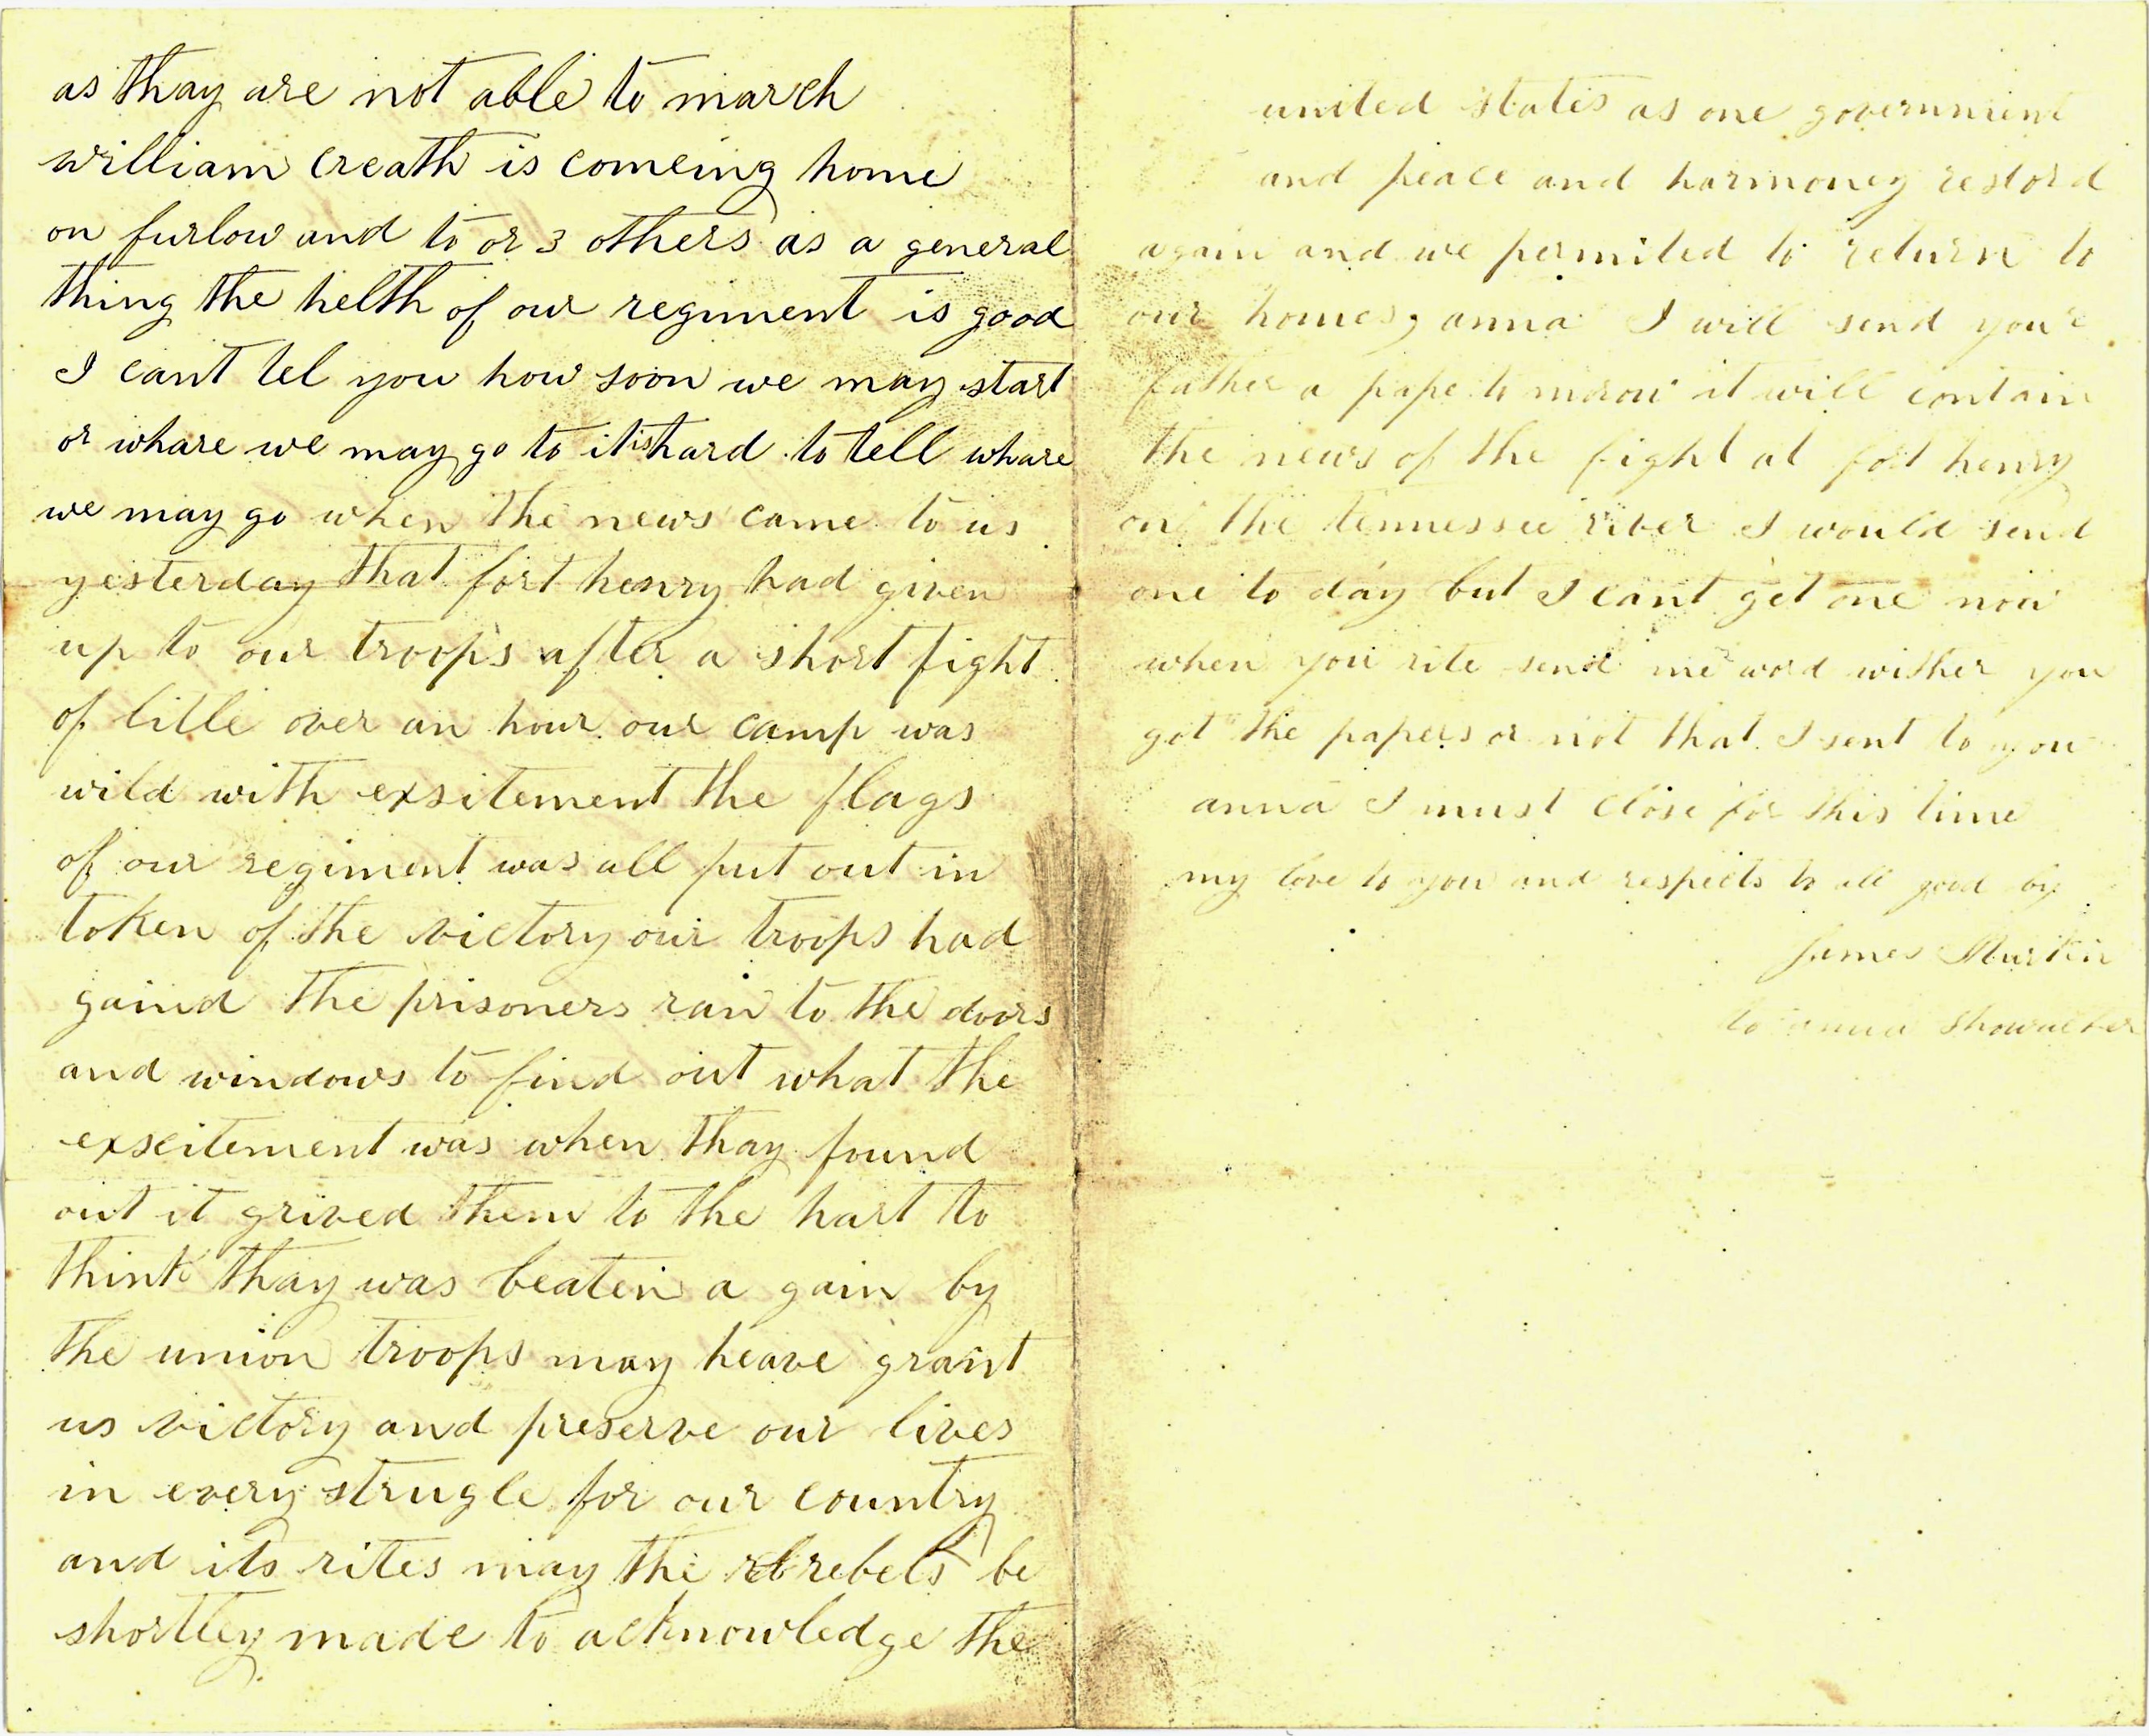 as thay are not able to march
william creath is comeing home
on furlow and to or 3 others as a general
thing the helth of our regiment is good
I cant tel you how soon we may start
or whare we may go to it is hard to tell whare
we may go when the news came to us
yesterday that fort henry had given
up to our troops after a short fight
of little over an hour our camp was
wild with exsitement the flags
of our regiment was all put out in
token of the victory our troops had
gaind the prisoners ran to the doors
and windows to find out what the
exseitement was when thay found
out it grived them to the hart to
think thay was beaten a gain by
the union troops may heave grant
us victory and preserve our lives
in every strugle for our country
and its rites may the reb rebels be
shortley made to acknowledge the
united states as one government
and peace and harmoney restord
again and we permited to return to
our homes, anna I will send your
father a pape to morow it will contain
the news of the fight at fort henry
on the tennessee river I would send
one to day but I cant get one now
when you rite send me word wither you
got the papers or not that I sent to you
anna I must close for this time
my love to you and respects to all good by
James Martin
to anna Showalter